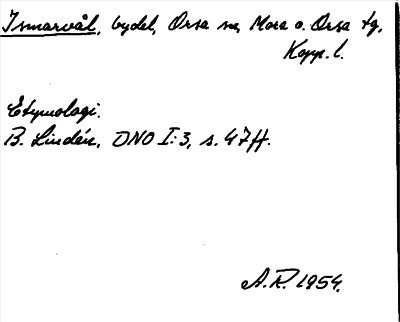 Ismarvål, bydel, Orsa sn, Mora o. Orsa tg,
Kopp. l.
Etymologi.
B. Lindén, DNO I:3, s. 47 ff.
A.R. 1954.